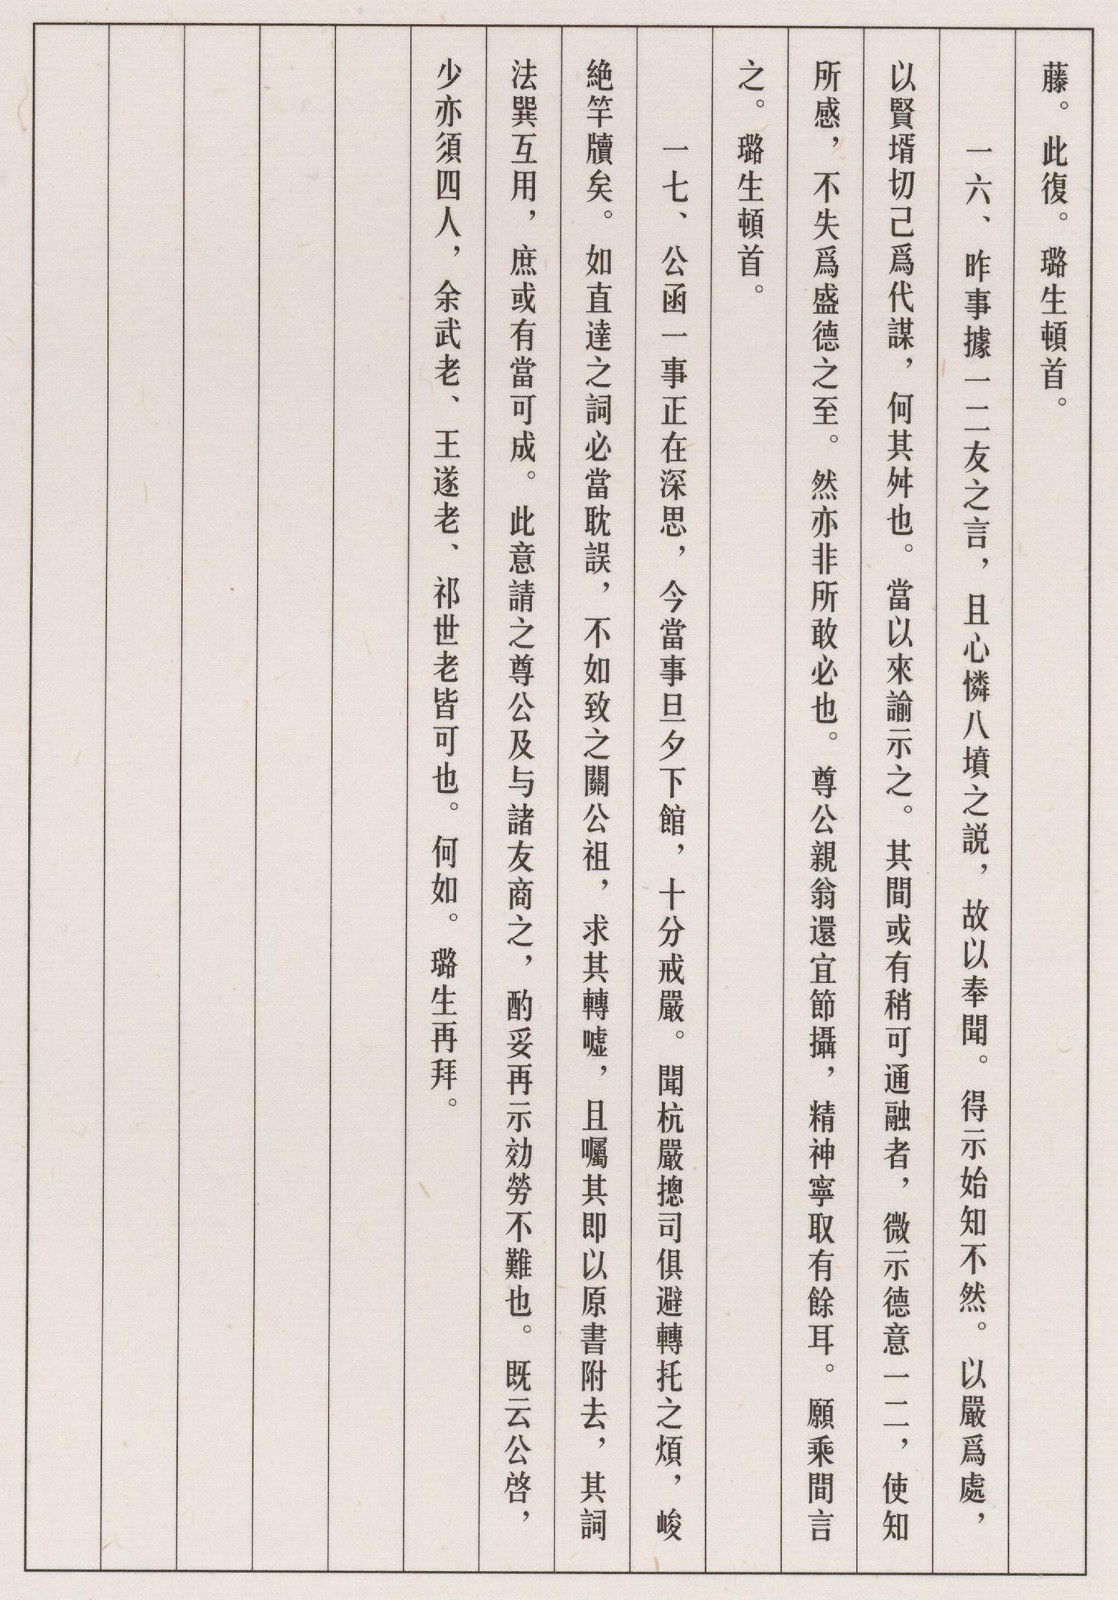 藤。此復。璐生頓首。
一六、昨事據一二友之言，且心憐八墳之説，故以奉聞。得示始知不然。以嚴爲處，
以賢壻切己爲代謀，何其舛也。當以來諭示之。其間或有稍可通融者，微示德意一二，使知
所感，不失爲盛德之至。然亦非所敢必也。尊公親翁還宜節攝，精神寧取有餘耳。願乘間言
之。璐生頓首。
一七、公函一事正在深思，今當事旦夕下館，十分戒嚴。聞杭嚴摠司俱避轉托之煩，峻
絶竿牘矣。如直達之詞必當耽誤，不如致之關公祖，求其轉噓，且囑其即以原書附去，其詞
法巽互用，庶或有當可成。此意請之尊公及与諸友商之，酌妥再示効勞不難也。既云公啓，
少亦須四人，余武老、王遂老、祁世老皆可也。何如。璐生再拜。